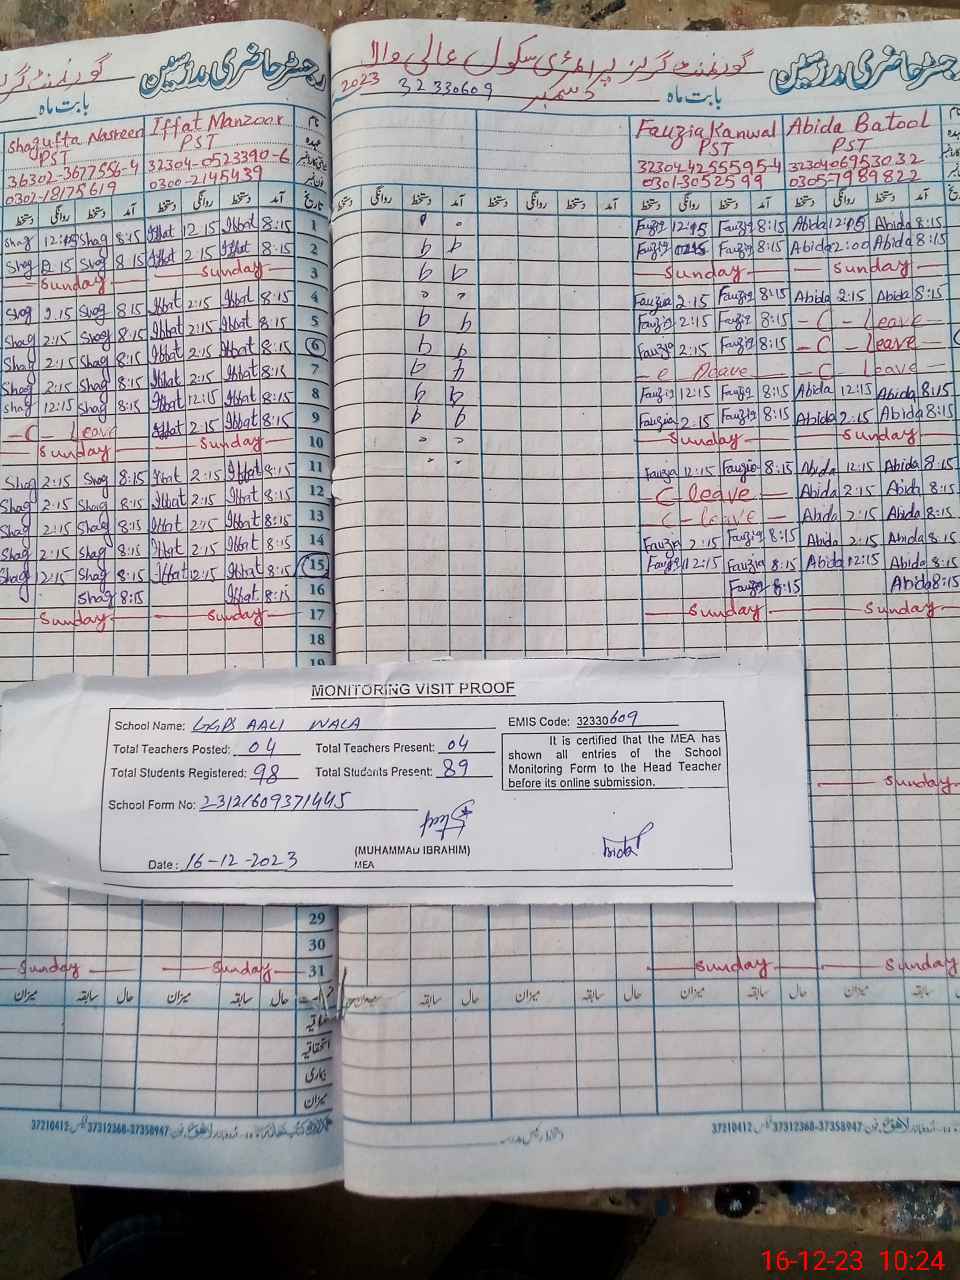 رجسٹر حاضری مدرسین
گورنمنٹ گرلز پرائمری سکول عالی والا
رجسٹر حاضری مدرسین
بابت ماہ
بابت ماہ دسمبر 32330609 2023
Shagufta Nasreen
PST
36302-3677556-4
0302-18175619
Iffat Manzoor
PST
32304-0523390-6
0300-2145439
Fauzia Kanwal
PST
32304-4255595-4
0301-3052599
Abida Batool
PST
3230406953032
03057989822
آمد دستخط روانگی دستخط
1 Shag 12:15 Shag 8:15 Iffat 12:15 Iffat 8:15 Fauzia 12:15 Fauzia 8:15 Abida 12:15 Abida 8:15
2 Shag 2:15 Shag 8:15 Iffat 2:15 Iffat 8:15 Fauzia Fauzia 8:15 Abida 2:00 Abida 8:15
3 Sunday Sunday Sunday Sunday
4 Shag 2:15 Shag 8:15 Iffat 2:15 Iffat 8:15 Fauzia 2:15 Fauzia 8:15 Abida 2:15 Abida 8:15
5 Shag 2:15 Shag 8:15 Iffat 2:15 Iffat 8:15 Fauzia 2:15 Fauzia 8:15 - C - Leave
6 Shag 2:15 Shag 8:15 Iffat 2:15 Iffat 8:15 Fauzia 2:15 Fauzia 8:15 - C - Leave
7 Shag 2:15 Shag 8:15 Iffat 2:15 Iffat 8:15 - C Leave - C - Leave
8 Shag 12:15 Shag 8:15 Iffat 12:15 Iffat 8:15 Fauzia 12:15 Fauzia 8:15 Abida 12:15 Abida 8:15
9 - C - Leave Iffat 2:15 Iffat 8:15 Fauzia 2:15 Fauzia 8:15 Abida 2:15 Abida 8:15
10 Sunday Sunday Sunday Sunday
11 Shag 2:15 Shag 8:15 Iffat 2:15 Iffat 8:15 Fauzia 12:15 Fauzia 8:15 Abida 12:15 Abida 8:15
12 Shag 2:15 Shag 8:15 Iffat 2:15 Iffat 8:15 - C - leave - Abida 2:15 Abida 8:15
13 Shag 2:15 Shag 8:15 Iffat 2:15 Iffat 8:15 - C - leave - Abida 2:15 Abida 8:15
14 Shag 2:15 Shag 8:15 Iffat 2:15 Iffat 8:15 Fauzia 2:15 Fauzia 8:15 Abida 2:15 Abida 8:15
15 Shag 12:15 Shag 8:15 Iffat 12:15 Iffat 8:15 Fauzia 12:15 Fauzia 8:15 Abida 12:15 Abida 8:15
16 Shag 8:15 Iffat 8:15 Fauzia 8:15 Abida 8:15
17 Sunday Sunday Sunday Sunday
18
19
MONITORING VISIT PROOF
School Name: GGPS AALI WALA EMIS Code: 32330609
Total Teachers Posted: 04 Total Teachers Present: 04
Total Students Registered: 98 Total Students Present: 89
It is certified that the MEA has
shown all entries of the School
Monitoring Form to the Head Teacher
before its online submission.
School Form No: 23121609371445
Date: 16-12-2023
(MUHAMMAD IBRAHIM)
MEA
Sunday
29
30
31 Sunday Sunday Sunday Sunday
حال سابقہ میزان
میزان
37210412 37312368-37358947
37210412 37312368-37358947
16-12-23 10:24